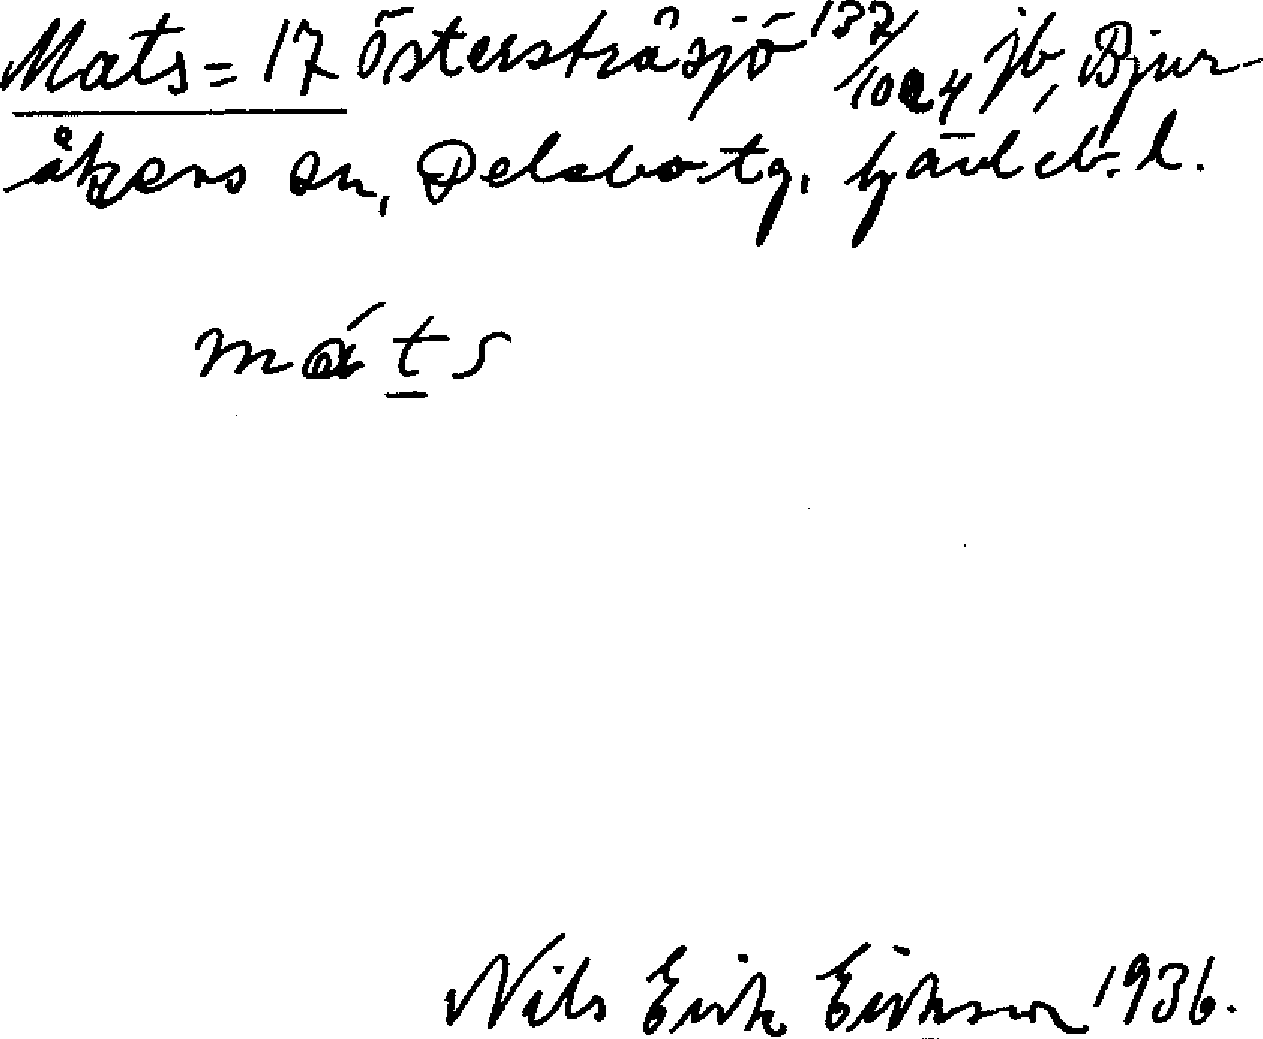 Mats = 17 Östersträsjö 137/1024 jb, Bjur
åkers sn, Delsbo tg. Gävleb. l.
máts
Nils Erik Eriksson 1936.